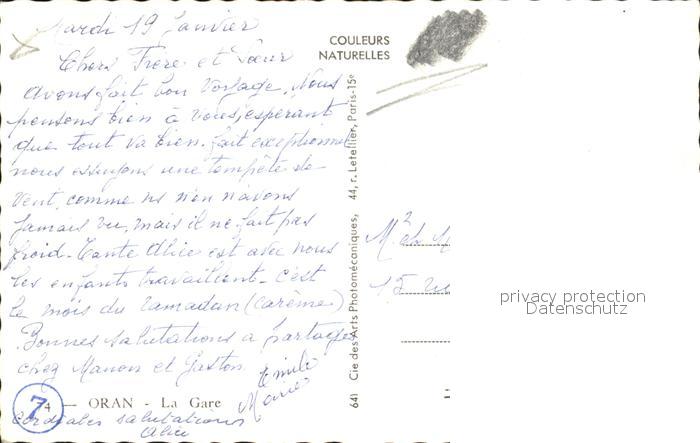 Mardi 19 Janvier
Chers Frere et Sœur
Avons fait bon Voyage. Nous
pensons bien à vous, espérant
que tout va bien. fait exceptionnel
nous essuyons une tempête de
vent, comme ns n'en n'avons
jamais vu, mais il ne fait pas
froid. Tante Alice est avec nous
les enfants travaillent. C'est
le mois du ramadan (carême)
Bonnes salutations a partager
chez Manon et Gaston
Emile
Marie
74 — ORAN - La Gare
Cordiales salutations
Alice
COULEURS
NATURELLES
641 Cie des Arts Photomécaniques, 44, r. Letellier, Paris-15e
15
privacy protection
Datenschutz
7